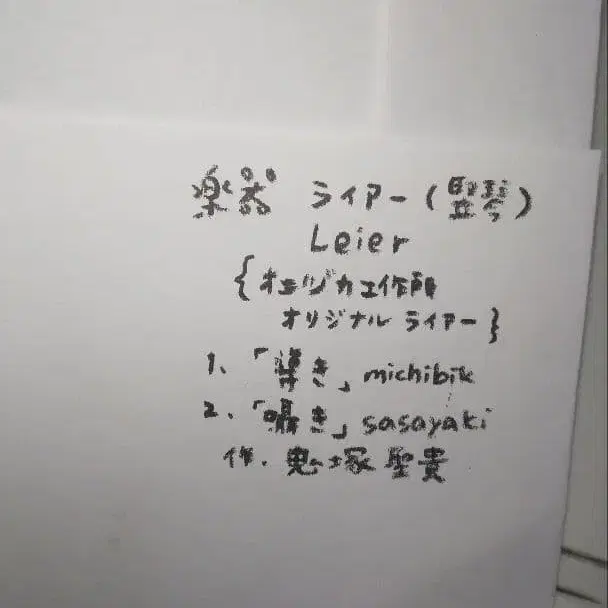 楽器 ライアー(竪琴)
Leier
{オェルジカ工作所
オリジナル ライアー}
1、「導き」michibik
2、「囁き」sasayaki
作. 鬼塚聖貴